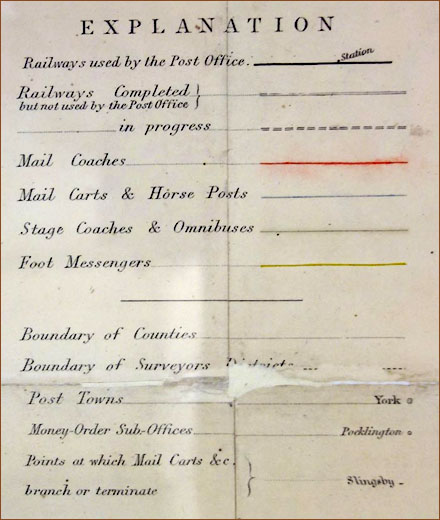 EXPLANATION
Railways used by the Post Office. Station
Railways Completed
but not used by the Post Office
in progress
Mail Coaches
Mail Carts & Horse Posts
Stage Coaches & Omnibuses
Foot Messengers
Boundary of Counties
Boundary of Surveyors Districts
Post Towns York
Money-Order Sub-Offices Pocklington
Points at which Mail Carts &c. Slingsby
branch or terminate